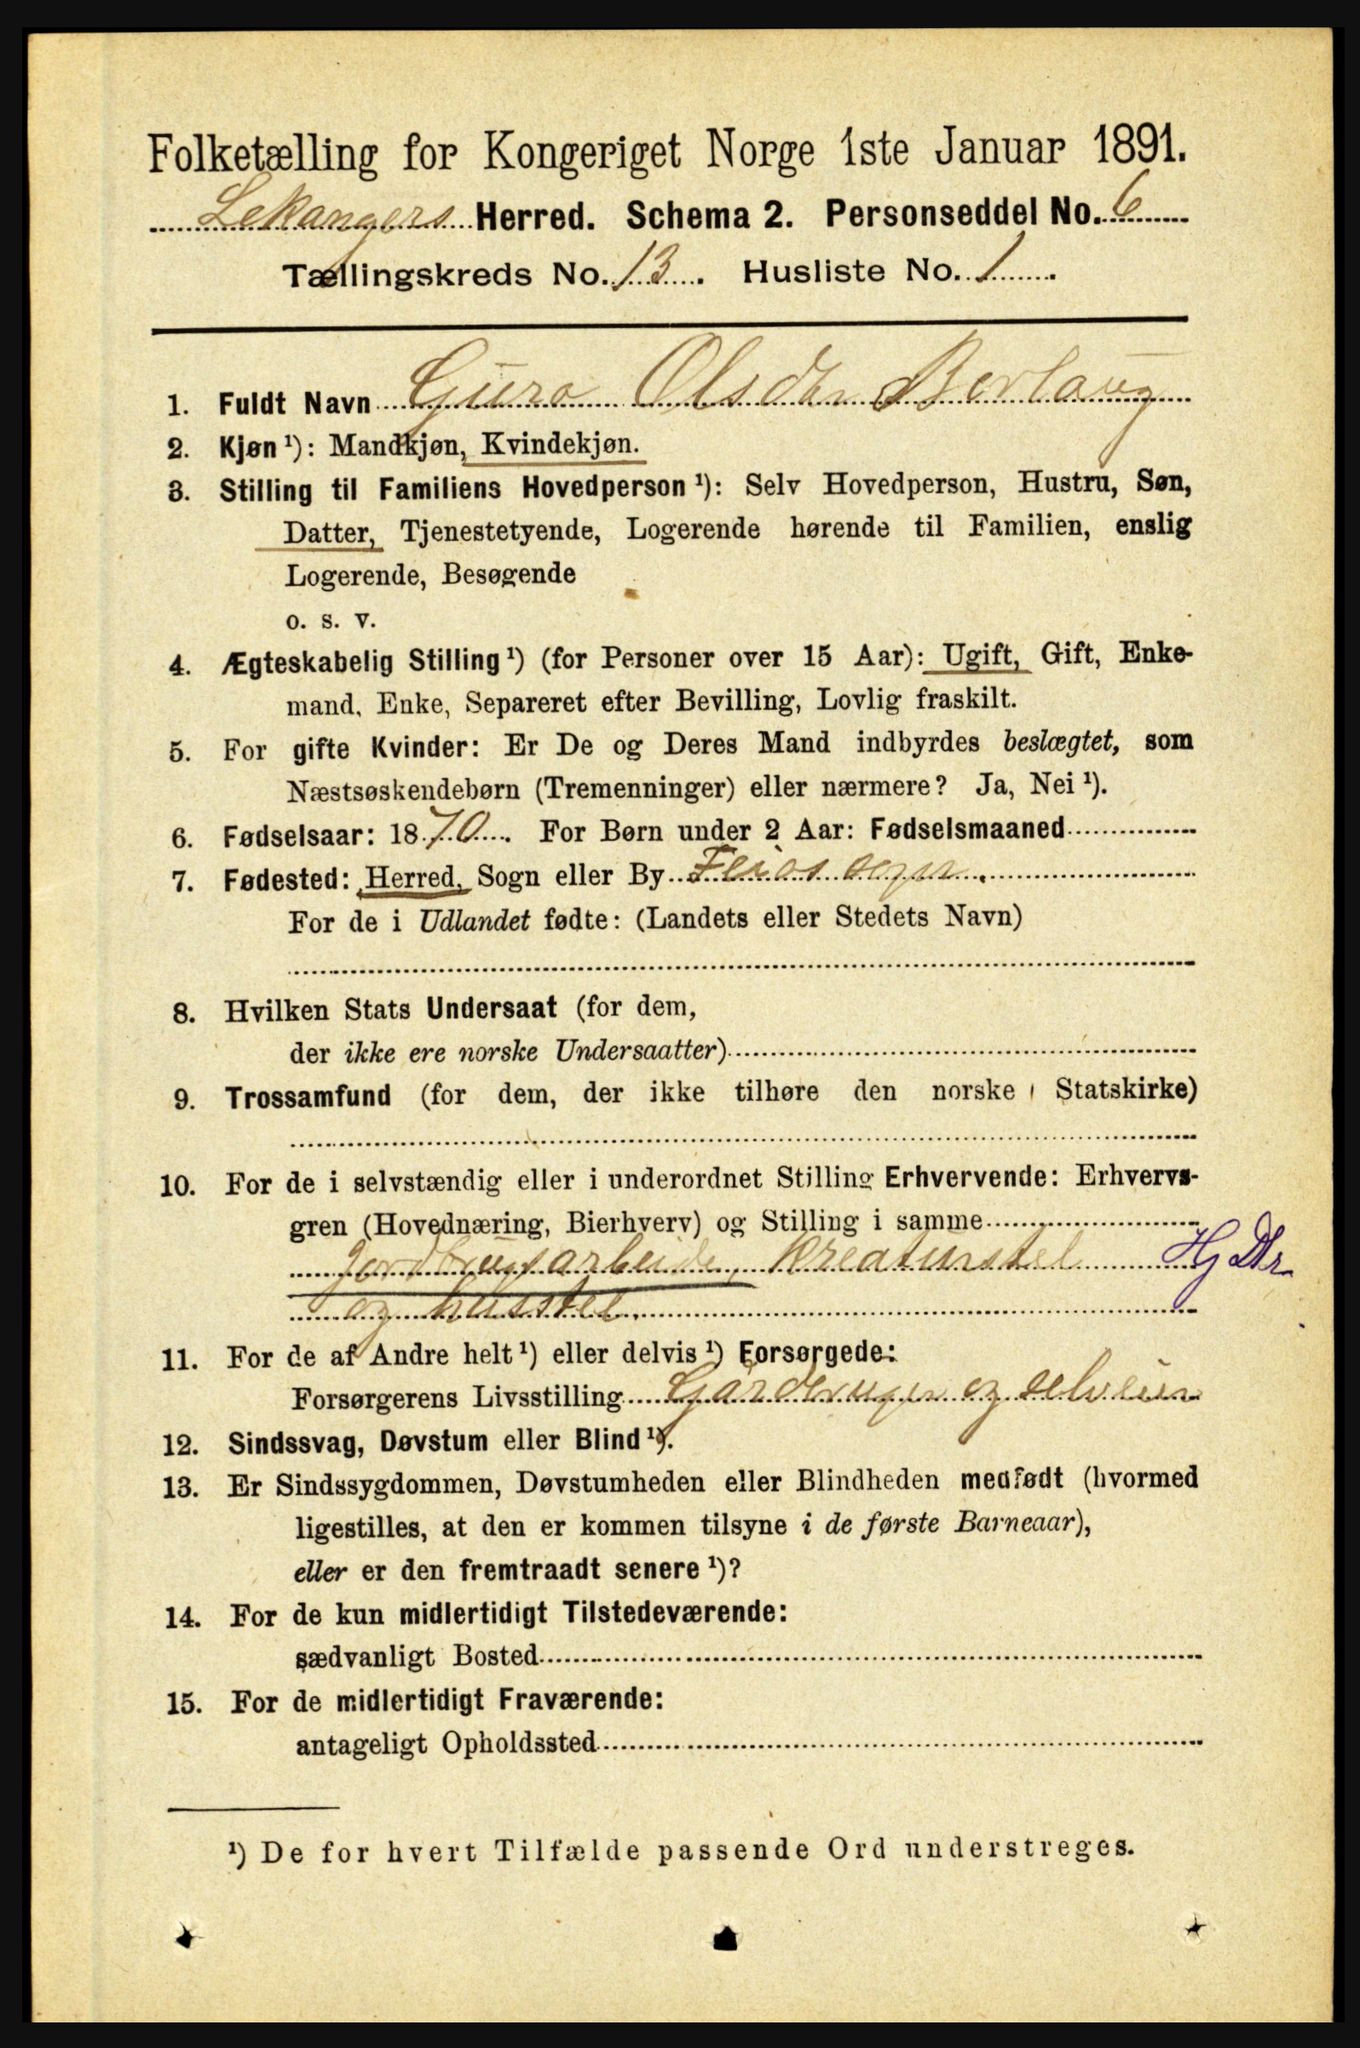 Folketælling for Kongeriget Norge 1ste Januar 1891.
Lekangers Herred. Schema 2. Personseddel No. 6
Tællingskreds No. 13. Husliste No. 1
1. Fuldt Navn Guro Olsdtr Berlaug
2. Kjøn ¹): Mandkjøn, Kvindekjøn.
3. Stilling til Familiens Hovedperson ¹): Selv Hovedperson, Hustru, Søn,
Datter, Tjenestetyende, Logerende hørende til Familien, enslig
Logerende, Besøgende
o. s. v.
4. Ægteskabelig Stilling ¹) (for Personer over 15 Aar): Ugift, Gift, Enke-
mand, Enke, Separeret efter Bevilling, Lovlig fraskilt.
5. For gifte Kvinder: Er De og Deres Mand indbyrdes beslægtet, som
Næstsøskendebørn (Tremenninger) eller nærmere? Ja, Nei ¹).
6. Fødselsaar: 1870. For Børn under 2 Aar: Fødselsmaaned
7. Fødested: Herred, Sogn eller By Feios sogn.
For de i Udlandet fødte: (Landets eller Stedets Navn)
8. Hvilken Stats Undersaat (for dem,
der ikke ere norske Undersaatter)
9. Trossamfund (for dem, der ikke tilhøre den norske Statskirke)
10. For de i selvstændig eller i underordnet Stilling Erhvervende: Erhvervs-
gren (Hovednæring, Bierhverv) og Stilling i samme
Jordbrugsarbeide, Kreaturstel Hj Dtr
og husstel.
11. For de af Andre helt ¹) eller delvis ¹) Forsørgede:
Forsørgerens Livsstilling Gårdbruger og selveier
12. Sindssvag, Døvstum eller Blind ¹).
13. Er Sindssygdommen, Døvstumheden eller Blindheden medfødt (hvormed
ligestilles, at den er kommen tilsyne i de første Barneaar),
eller er den fremtraadt senere ¹)?
14. For de kun midlertidigt Tilstedeværende:
sædvanligt Bosted
15. For de midlertidigt Fraværende:
antageligt Opholdssted
¹) De for hvert Tilfælde passende Ord understreges.